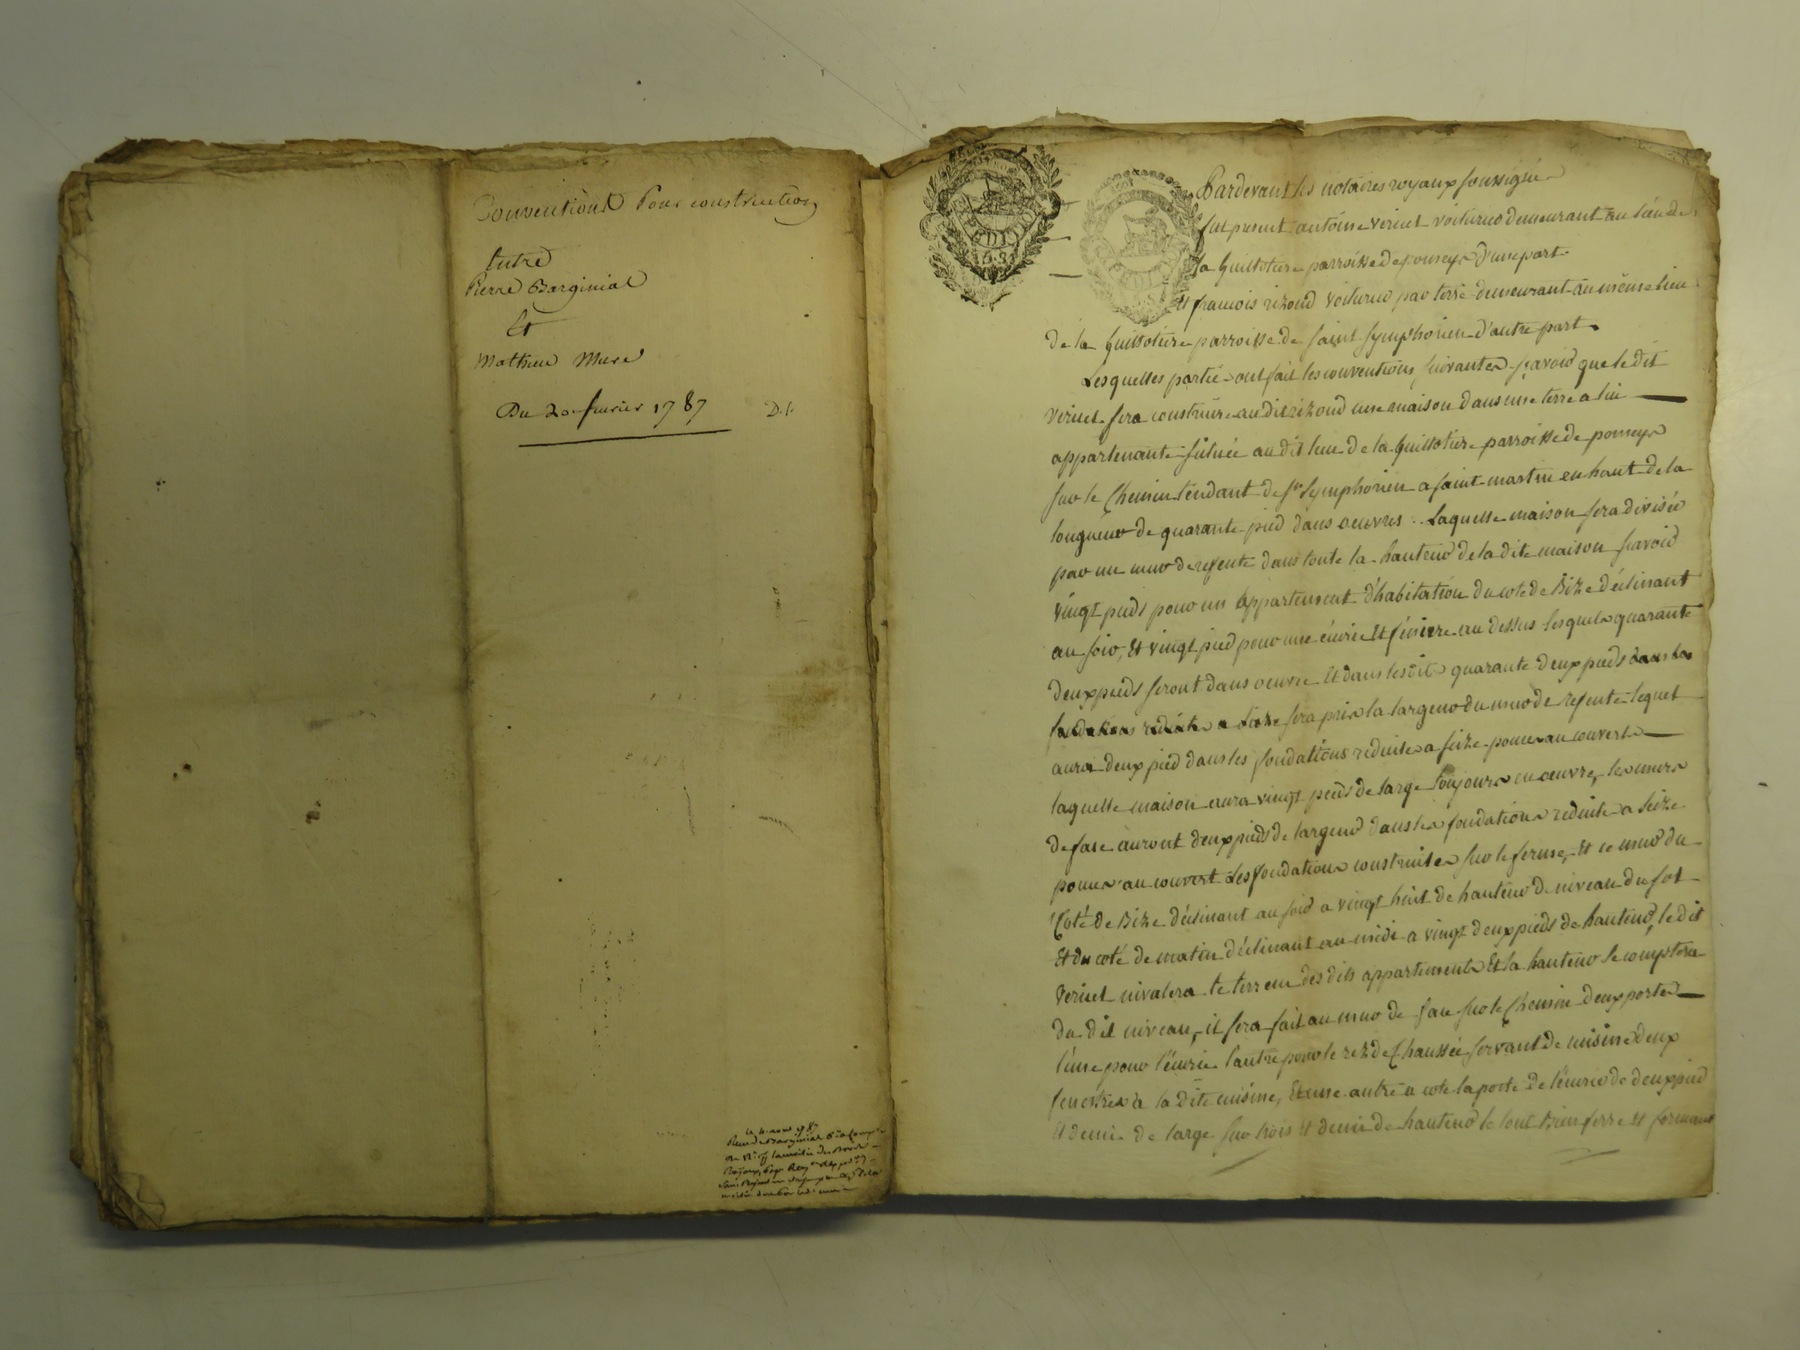 Conventions Pour construction
Entre
Pierre Barginial
Et
Mathieu Mure
Du 20 fevrier 1787
D. f.
Pardevant les notaires royaux soussignés
fut present antoine veriut voiturier demeurant au lieu de
la Guillotiere parroisse de pomeys d'une part
Et francois rizoud voiturier par terre demeurant au même lieu
de la Guillotiere parroisse de saint symphorien d'autre part
Lesquelles partie ont fait les conventions suivantes sçavoir que le dit
veriut fera construire au dit rizoud une maison dans une terre a lui
appartenante située au dit lieu de la Guillotiere parroisse de pomeys
sur le Chemin tendant de st symphorien a saint martin en haut de la
longueur de quarante pied dans oeuvres. Laquelle maison sera divisée
par un mur de refente dans toute la hauteur de la dite maison sçavoir
vingt pieds pour un appartement d'habitation du coté de Bize déclinant
au soir, Et vingt pied pour une écurie Et féniere au dessus lesquels quarante
deux pieds seront dans oeuvre Et dans lesdits quarante deux pieds
sera pris la largeur du mur de refente lequel
aura deux pied dans les fondations reduites a seize pouces au couvert
laquelle maison aura vingt pieds de large toujours en oeuvre, les murs
de face auront deux pieds de largeur dans les fondations reduite a seize
pouces au couvert Les fondations construites sur le ferme, Et ce mur du
Coté de Bize déclinant au soir a vingt huit de hauteur de niveau du sol
Et du coté de matin déclinant au midi a vingt deux pieds de hauteur, le dit
veriut nivalera le terrein des dits appartements Et la hauteur se comptera
du dit niveau, il sera fait au mur de face sur le Chemin deux portes
l'une pour l'écurie l'autre pour le rez de Chaussée servant de cuisine deux
fenestres a la dite cuisine, Et une autre a coté la porte de l'écurie de deux pied
Et demi de large sur trois Et demi de hauteur le tout bien ferré Et fermant